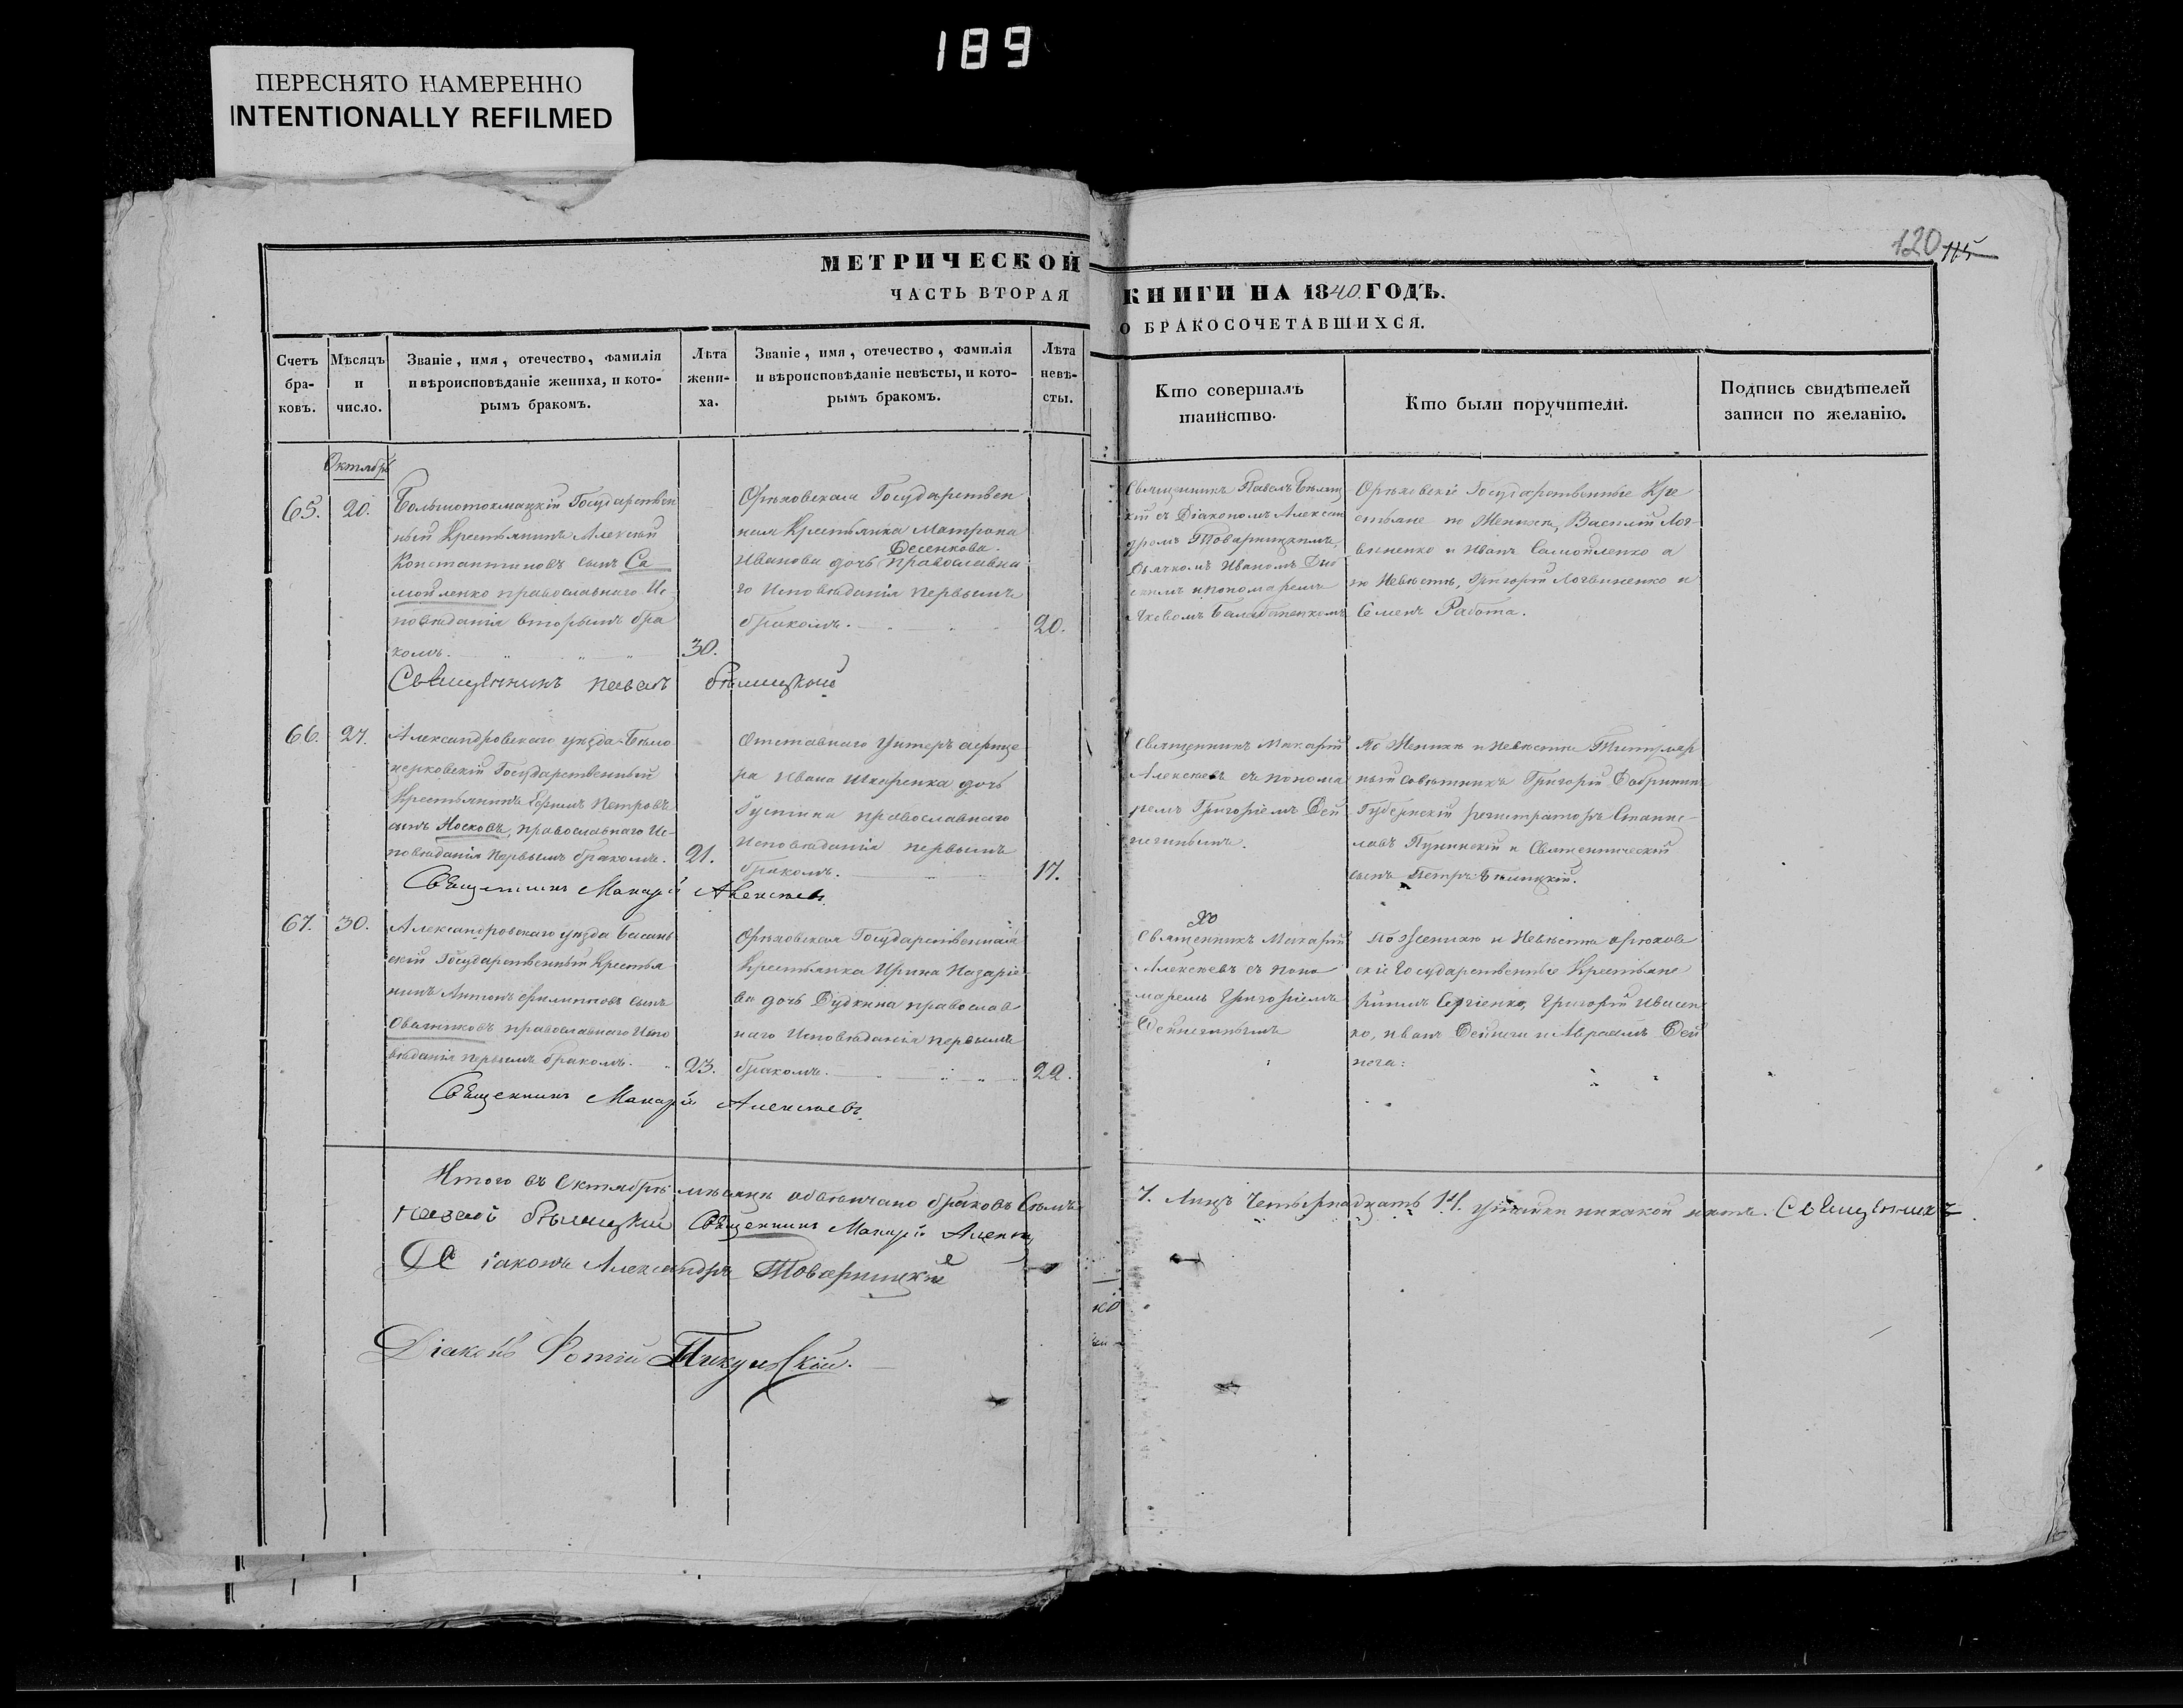 189
ПЕРЕСНЯТО НАМЕРЕННО
INTENTIONALLY REFILMED
120 115
МЕТРИЧЕСКОЙ
ЧАСТЬ ВТОРАЯ
КНИГИ НА 1840 ГОДЪ.
О БРАКОСОЧЕТАВШИХСЯ.
Счетъ бра-ковъ.
Мѣсяцъ и число.
Званіе, имя, отечество, фамилія
и вѣроисповѣданіе жениха, и кото-
рымъ бракомъ.
Лѣта жени-ха.
Званіе, имя, отечество, фамилія
и вѣроисповѣданіе невѣсты, и кото-
рымъ бракомъ.
Лѣта невѣ-сты.
Кто совершалъ
таинство.
Кто были поручители.
Подпись свидѣтелей
записи по желанію.
Октябрь
65.
20.
Большотокмацкій Государствен
ный Крестьянинъ Алексѣй
Константиновъ сынъ Са
мойленко православнаго Ис-
повѣданія вторымъ бра
комъ.
30.
Орѣховская Государствен
ная Крестьянка Матрона
Десенкова.
Иванова дочь православна
го Исповѣданія первымъ
бракомъ.
20.
Священникъ Павелъ Бѣлиц
кій съ Діакономъ Алексан
дромъ Товарницкимъ,
Дьячкомъ Иваномъ
и пономаремъ
Яковомъ
Орѣховскіе Государственные Кре
стьяне по Женихѣ, Василій Лог-
виненко и Иванъ Самойленко а
по Невѣстѣ, Григорій Логвиненко и
Семенъ Работа.
Священникъ павелъ бѣлицкий
66.
27.
Александровскаго уѣзда Бѣло
церковскій Государственный
Крестьянинъ Ефимъ Петровъ
сынъ Носковъ, православнаго Ис-
повѣданія первымъ бракомъ.
21.
Отставнаго Унтеръ афице
ра Ивана Шкуренка дочь
Іустина православнаго
Исповѣданія первымъ
бракомъ.
17.
Священникъ Макарій
Алексѣевъ съ понома
ремъ Григоріемъ Дей
негинымъ.
По Женихѣ и Невѣстѣ Титуляр
ный совѣтникъ Григорій
Губернскій регистраторъ Станис-
лавъ и Священническій
сынъ Петръ Бѣлицкій.
Священникъ Макарій Алексѣевъ.
67.
30.
Александровскаго уѣзда Басань
скій Государственный Крестья
нинъ Антонъ Филиповъ сынъ
Овсяниковъ православнаго Испо
вѣданія первымъ бракомъ.
23.
Орѣховская Государственная
Крестьянка Ирина Назаріе
ва дочь Дудкина православ
наго Исповѣданія первымъ
бракомъ.
22.
Священникъ Макарій
Алексѣевъ съ поно
маремъ Григоріемъ
Дейнегинымъ
По Женихѣ и Невѣстѣ орѣхов
скіе Государственные Крестьяне
Сергіенко, Григорій Ивасен
ко, иванъ Дейнега и Авраамъ Дей
нега:
Священникъ Макарій Алексѣевъ.
Итого въ Октябрѣ мѣсяцѣ обвѣнчано браковъ Семь
7. Лицъ Четырнадцать 14. утайки никакой нѣтъ. Священникъ
павелъ бѣлицкий Священникъ Макарій Алексѣевъ
Діаконъ Александръ Товарницкій
Діаконъ Фотій Пикульскій.